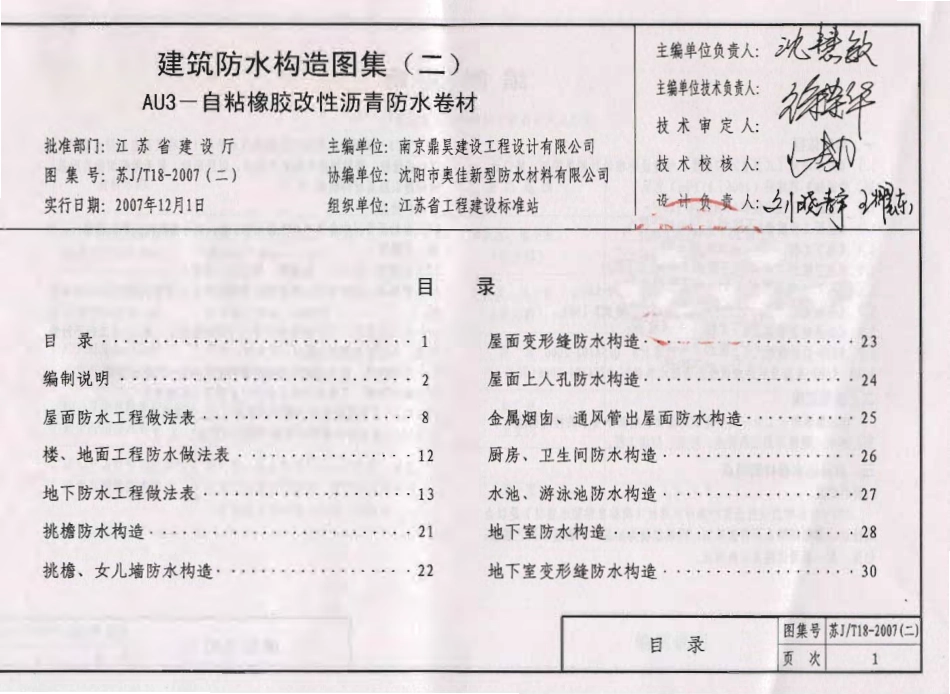 建筑防水构造图集（二）
AU3－自粘橡胶改性沥青防水卷材
批准部门：江苏省建设厅
主编单位：南京鼎昊建设工程设计有限公司
图集号：苏J/T18-2007（二）
协编单位：沈阳市奥佳新型防水材料有限公司
实行日期：2007年12月1日
组织单位：江苏省工程建设标准站
主编单位负责人：沈慧敏
主编单位技术负责人：
技术审定人：
技术校核人：
设计负责人：刘晓静
目 录
目 录 1
编制说明 2
屋面防水工程做法表 8
楼、地面工程防水做法表 12
地下防水工程做法表 13
挑檐防水构造 21
挑檐、女儿墙防水构造 22
屋面变形缝防水构造 23
屋面上人孔防水构造 24
金属烟囱、通风管出屋面防水构造 25
厨房、卫生间防水构造 26
水池、游泳池防水构造 27
地下室防水构造 28
地下室变形缝防水构造 30
目 录
图集号 苏J/T18-2007(二)
页 次 1